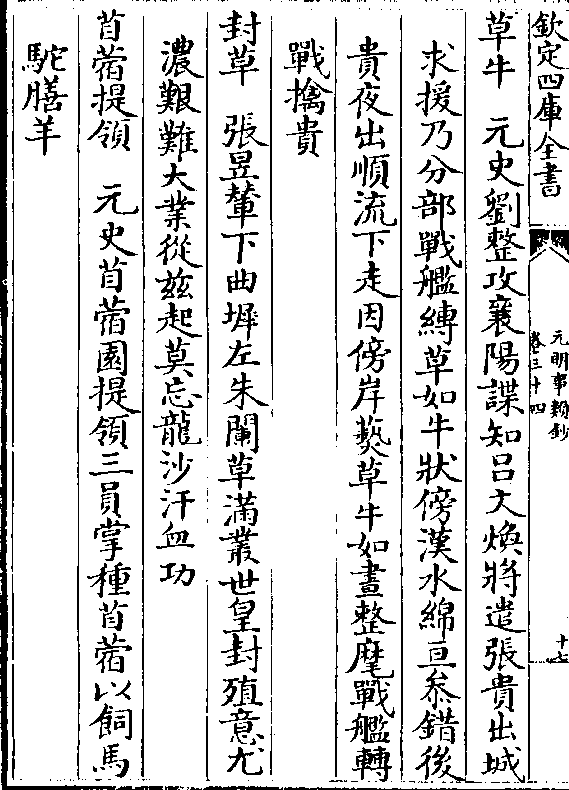 欽定四庫全書
元明事類鈔
卷三十四
十七
草牛　元史劉整攻襄陽諜知吕文煥將遣張貴出城
求援乃分部戰艦縛草如牛狀傍漢水綿亘叅錯後
貴夜出順流下走因傍岸爇草牛如晝整麾戰艦轉
戰擒貴
封草　張昱輦下曲墀左朱闌草滿叢世皇封殖意尤
濃艱難大業從兹起莫忘龍沙汗血功
苜蓿提領　元史苜蓿園提領三員掌種苜蓿以飼馬
駝膳羊